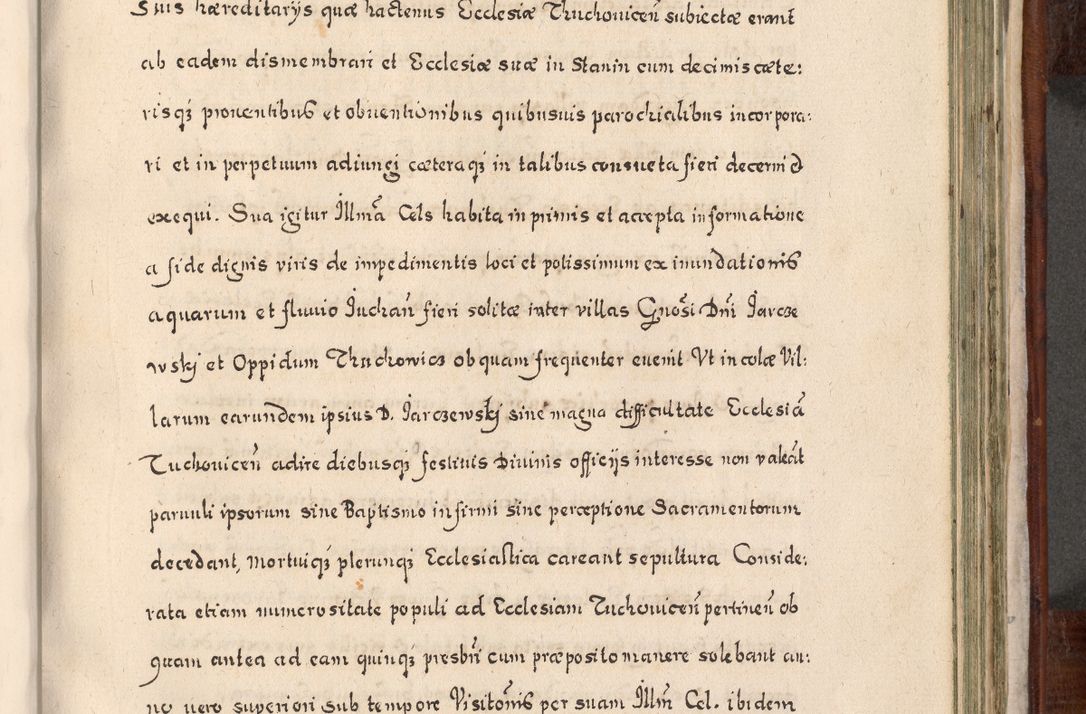 Suis hæreditarijs quæ hactenus Ecclesiæ Thuchovicen̄ subiectæ erant
ab eadem dismembrari et Ecclesiæ suæ in Stanin cum decimis cæte:
risqꝫ proventibus et obventionibus quibusuis parochialibus incorpora:
ri et in perpetuum adiungi cæteraqꝫ in talibus consueta fieri decerni &
exequi. Sua igitur Illmā Cels habita in primis et accepta informatione
a fide dignis viris de impedimentis loci et potissimum ex inundationis
aquarum et fluvio Juchan̄ fieri solitæ inter villas Gnōsi Dn̄i Jarcze
wskj et Oppidum Thuchowicz ob quam frequenter evenit Vt incolæ Vil:
larum earundem ipsius D. Jarczewskj sine magna difficultate Ecclesiā
Tuchovicen̄ adire diebusqꝫ festivis Divinis officijs interesse non valeāt
parvuli ipsorum sine Baptismo infirmi sine perceptione Sacramentorum
decedant, mortuiqꝫ plerunqꝫ Ecclesiastica careant sepultura Conside:
rata etiam numerositate populi ad Ecclesiam Tuchovicen̄ pertinen̄ ob
quam antea ad eam quinqꝫ presbrī cum præposito manere solebant an:
no vero superiori sub tempore Visitōnis per suam Illm̄ Cel. ibidem